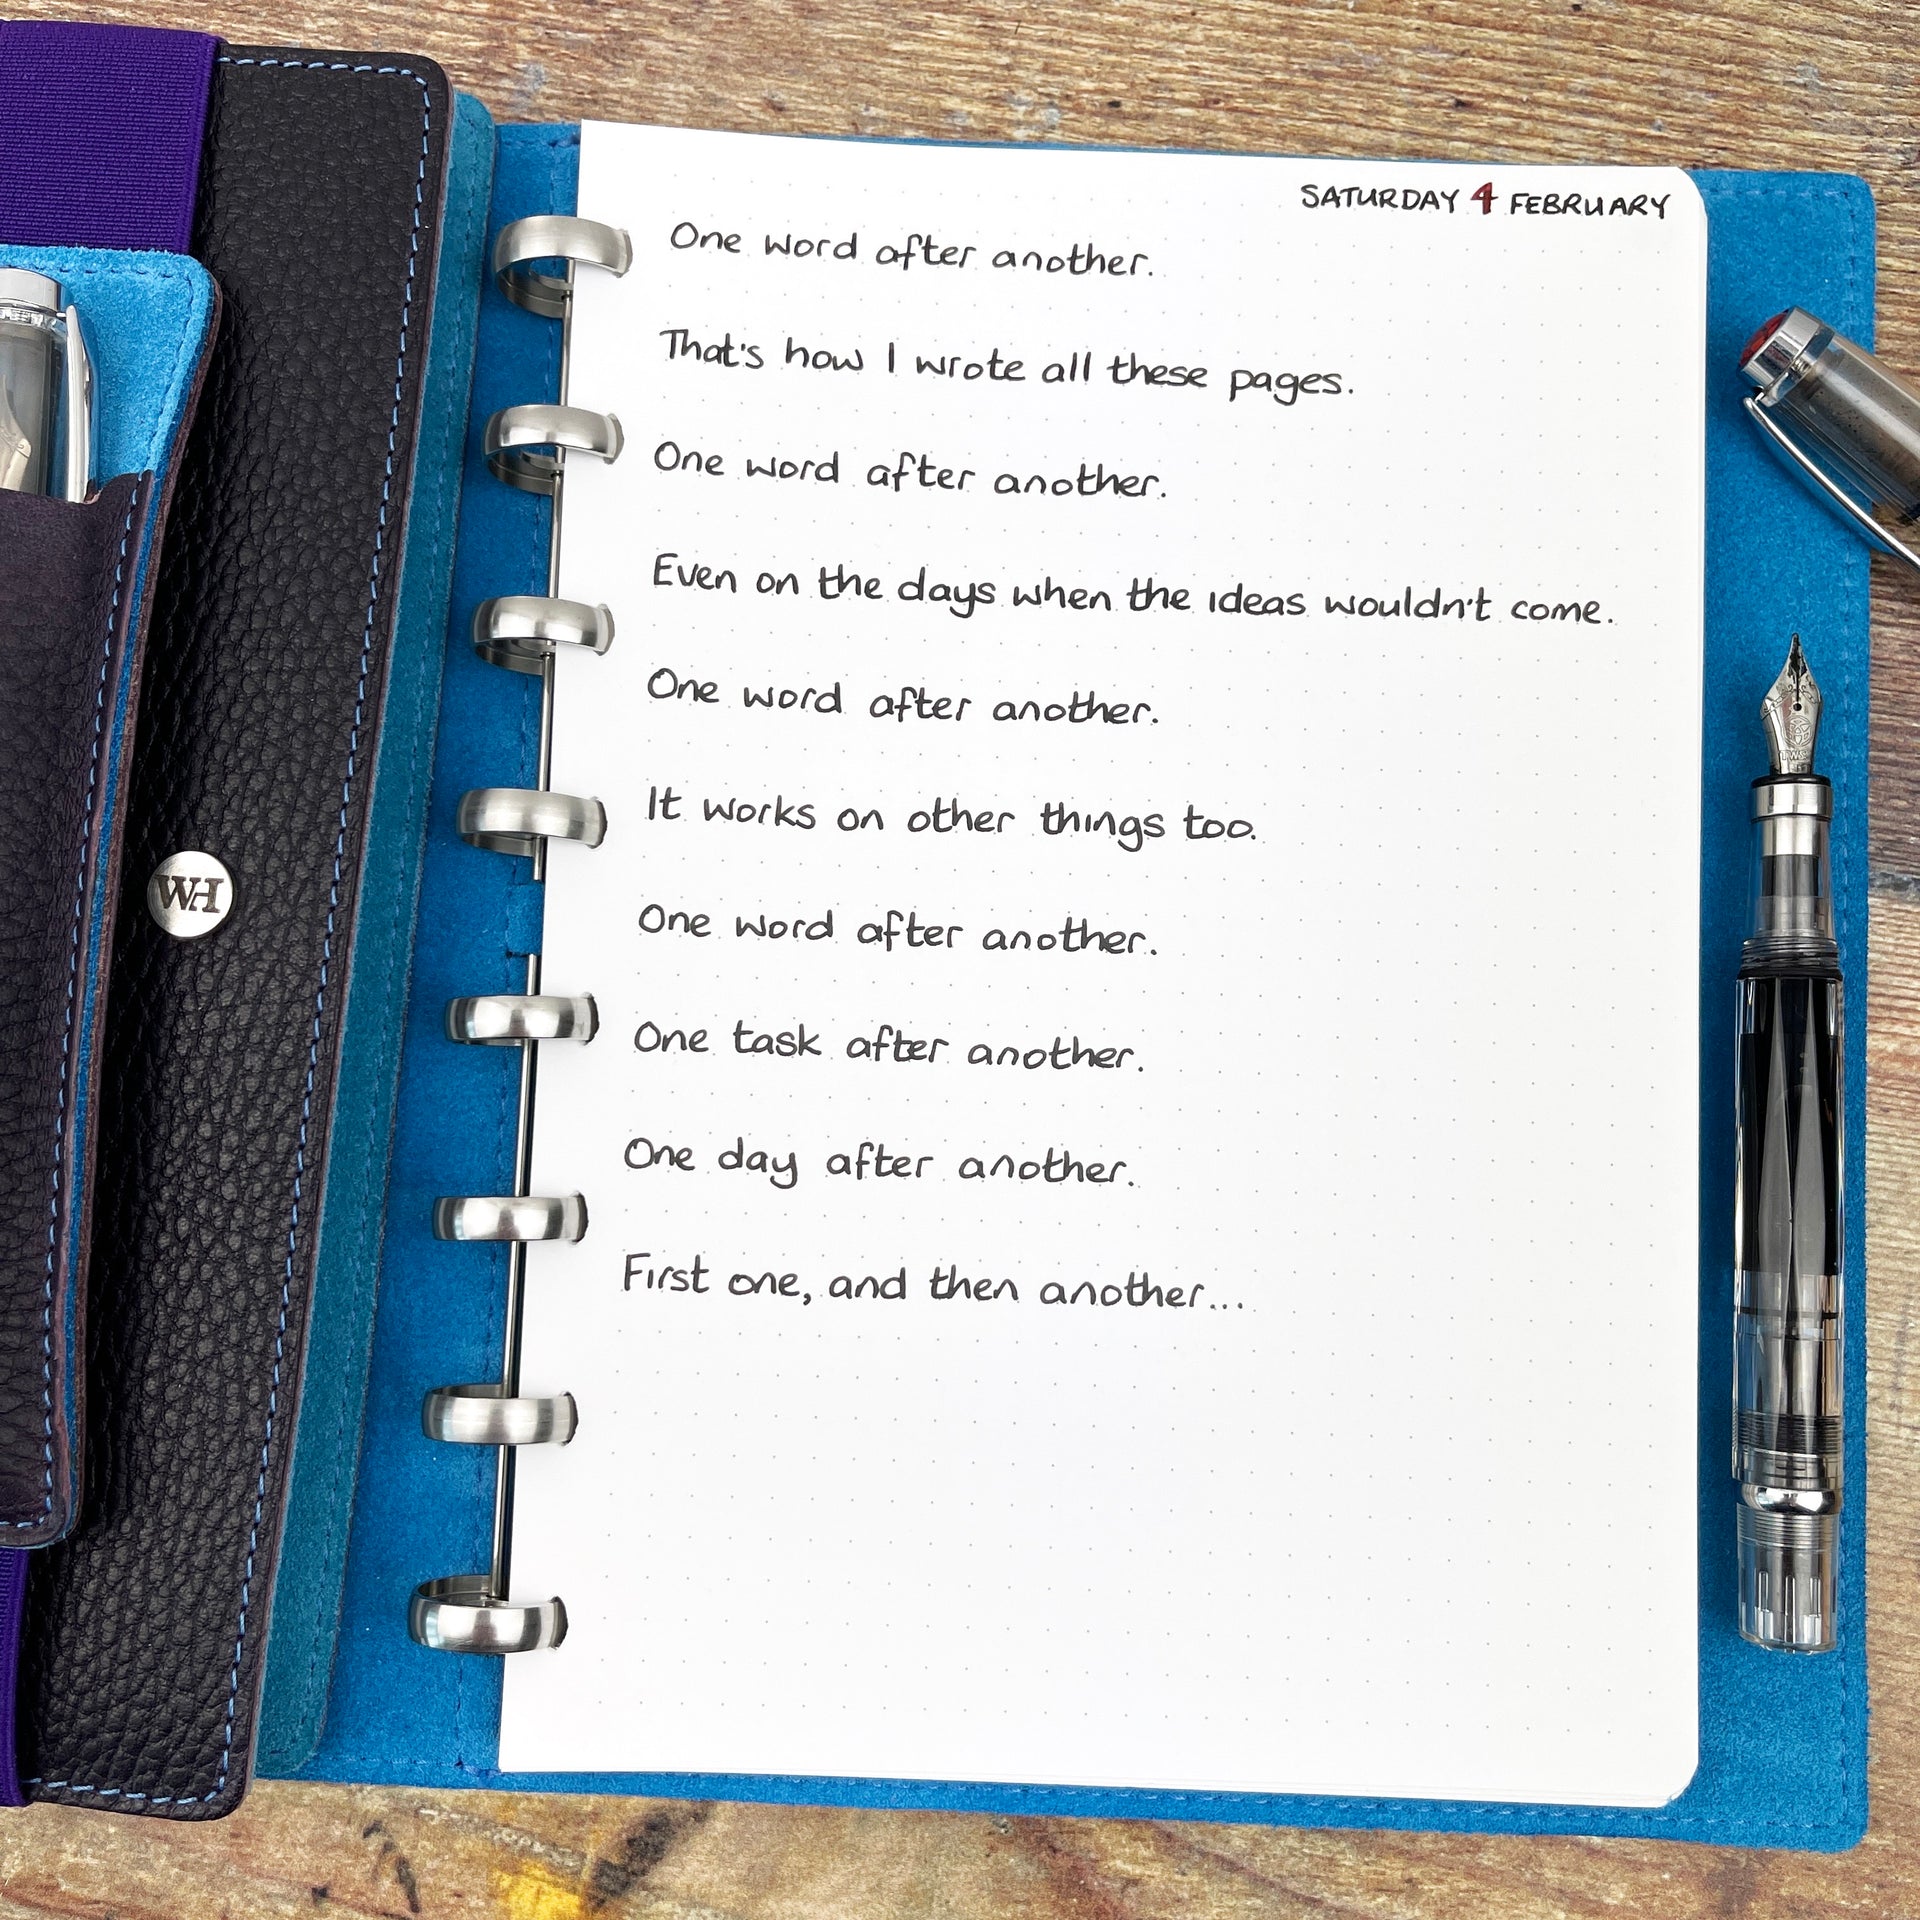 SATURDAY 4 FEBRUARY
One word after another.
That's how I wrote all these pages.
One word after another.
Even on the days when the ideas wouldn't come.
One word after another.
It works on other things too.
One word after another.
One task after another.
One day after another.
First one, and then another...
WH